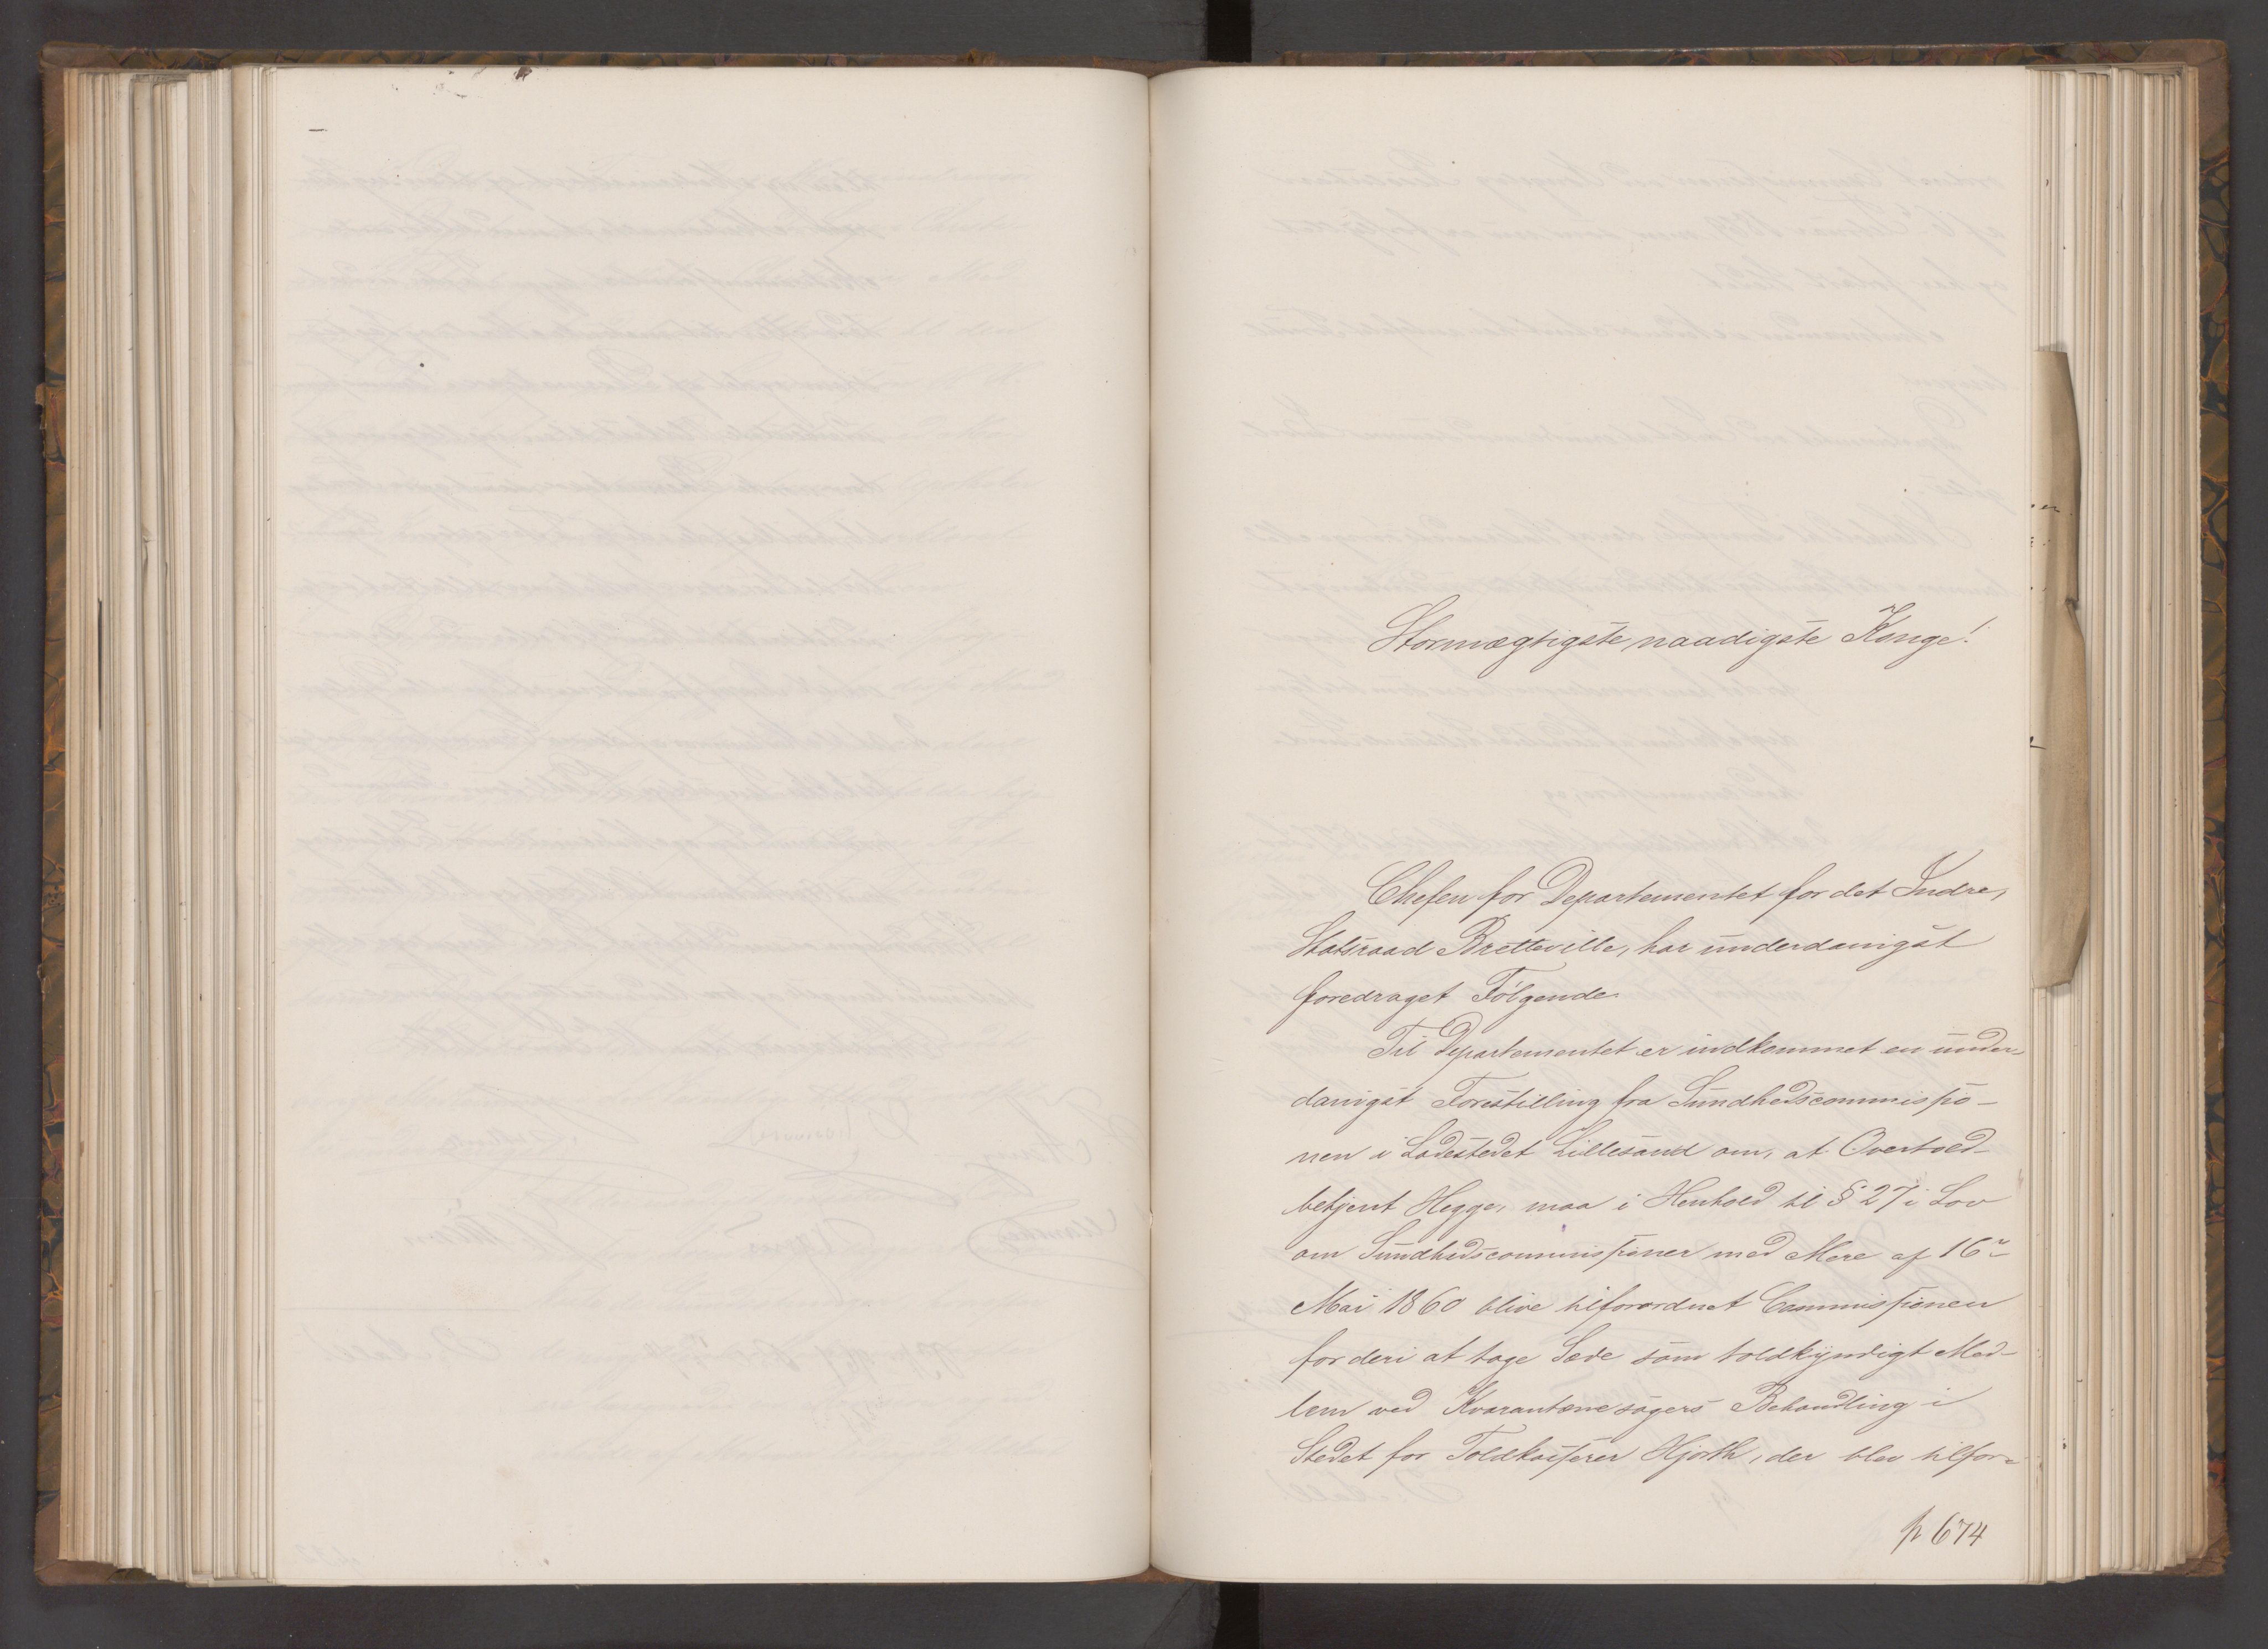 Stormægtigste naadigste Konge!
Chefen for Departementet for det Indre,
Statsraad Bretteville, har underdanigst
foredraget Følgende.
Til Departementet er indkommet en under-
danigst Forestilling fra Sundhedscommissio-
nen i Ladestedet Lillesand om, at Overtold-
betjent Hegge, maa i Henhold til § 27 i Lov
om Sundhedscommissioner med Mere af 16de
Mai 1860 blive tilforordnet Commissionen
for deri at tage Sæde som toldkyndigt Med-
lem ved Kvarantænesagers Behandling i
Stedet for Toldkasserer Hjorth, der blev tilfor-
p 674